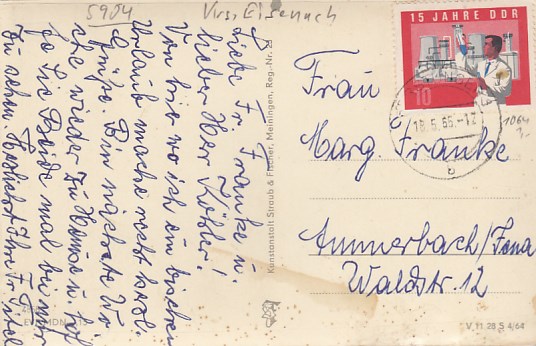 5904
Krs. Eisenach
Liebe Fr. Franke u.
lieber Herr Köhler!
Von hier wo ich ein bischen
Urlaub mache recht herzl.
Grüße. Bin nächste Wo
che wieder zu Hause u.
Sie Beide mal bei mir
zu sehen. Herzlichst Ihre
Kunstanstalt Straub & Fischer, Meiningen, Reg.-Nr.
15 JAHRE DDR
10
18.5.65.-12
1064
Frau
Marg. Franke
Ammerbach/Jena
Waldstr. 12
V 11 28 S 4/64